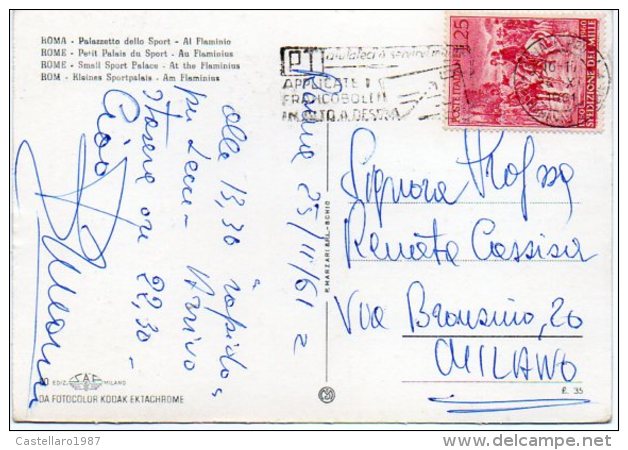 ROMA - Palazzetto dello Sport - Al Flaminio
ROME - Petit Palais du Sport - Au Flaminius
ROME - Small Sport Palace - At the Flaminius
ROM - Kleines Sportpalais - Am Flaminius
PT
APPLICATE
FRANCOBOLLI
IN ALTO A DESTRA
25
POSTE ITALIANE
SPEDIZIONE DEI MILLE
1860
1960
25/11/61
alle 13,30 rapido
per Lecce - Arrivo
stasera ore 22,30 -
Ciao
Signora
Renata Cassisa
Via Bronzino, 20
MILANO
P. MARZARI S.P.L. - SCHIO
EDIZ. S.A.F. MILANO
DA FOTOCOLOR KODAK EKTACHROME
£. 35
Castellaro1987
www.delcampe.net